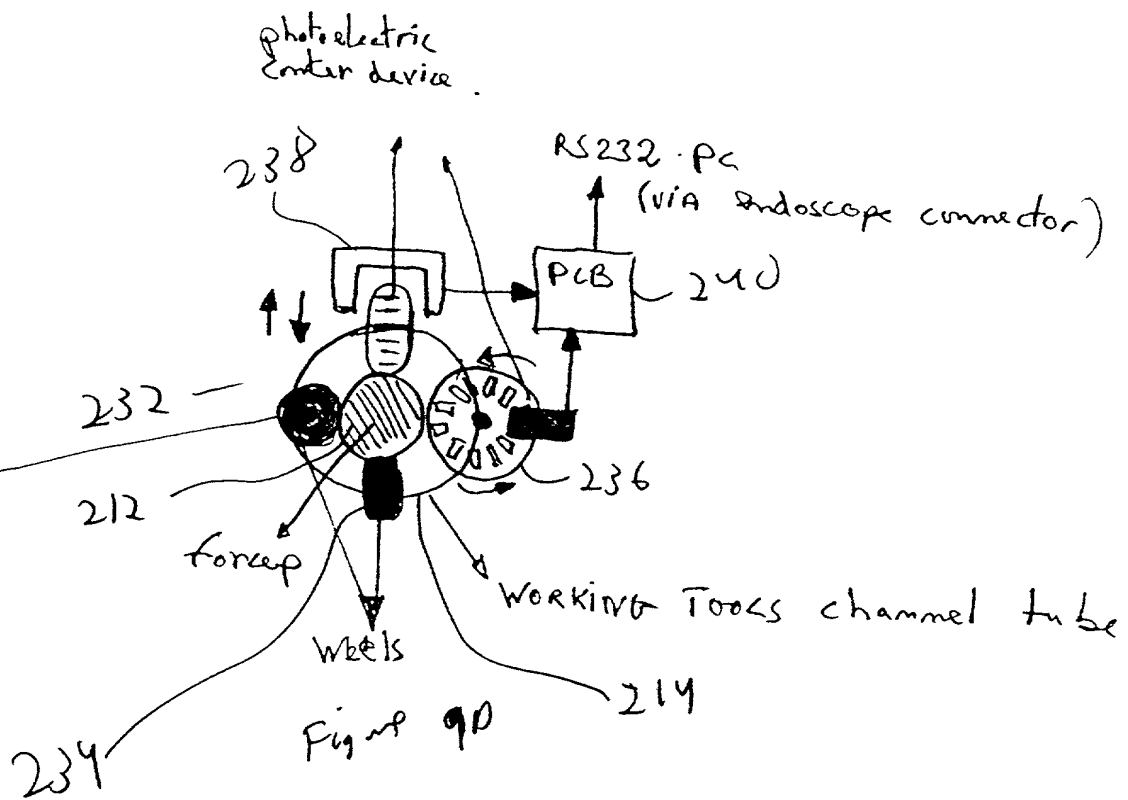 photoelectric
conter device.
238
RS232.PC
(via endoscope connector)
PCB
240
232
212
236
forcep
WORKING TOOLS channel tube
Wheels
214
Figure 9D
234